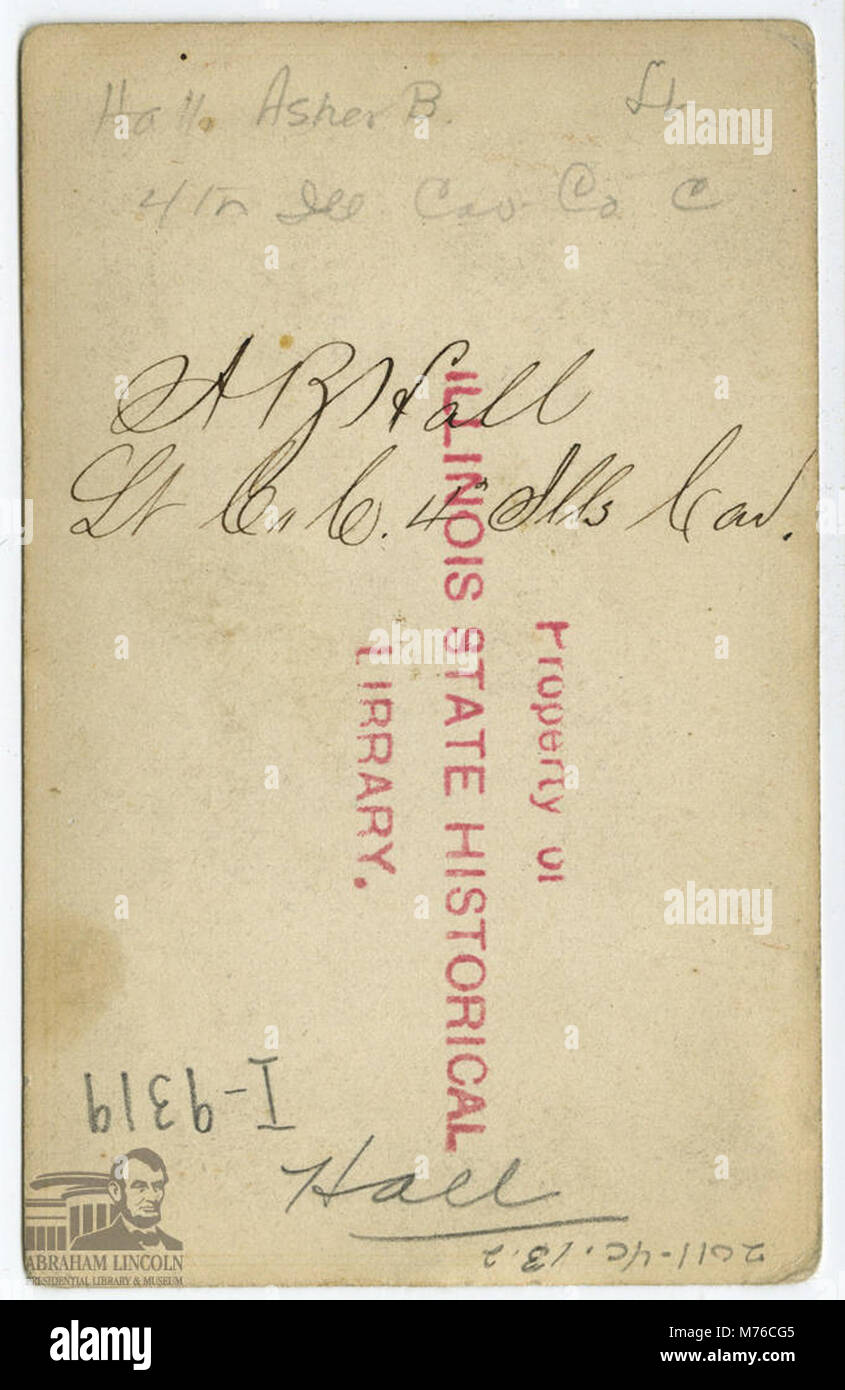 Hall. Asher B. Lt
4th Ill Cav Co C
A B Hall
Lt Co C. 4" Ills Cav.
Property of
ILLINOIS STATE HISTORICAL
LIBRARY.
I-9319
Hall
2011-4C.13.2
ABRAHAM LINCOLN
PRESIDENTIAL LIBRARY & MUSEUM
alamy
alamy
Image ID: M76CG5
www.alamy.com